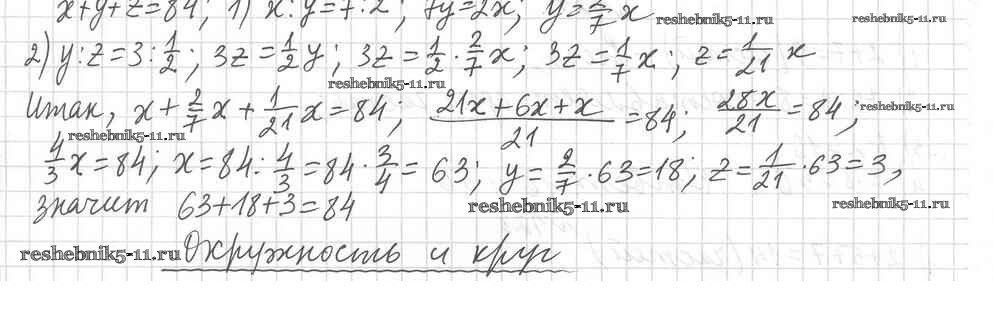 x+y+z=84; 1) x:y=7:2; 7y=2x; y=2/7 x reshebnik5-11.ru reshebnik5-11.ru
2) y:z=3:1/2; 3z=1/2 y; 3z=1/2·2/7 x; 3z=1/7 x; z=1/21 x
reshebnik5-11.ru
Итак, x+2/7 x+1/21 x=84; (21x+6x+x)/21=84; 28x/21=84; reshebnik5-11.ru
reshebnik5-11.ru
4/3 x=84; x=84:4/3=84·3/4=63; y=2/7·63=18; z=1/21·63=3,
значит 63+18+3=84 reshebnik5-11.ru reshebnik5-11.ru
reshebnik5-11.ru Окружность и круг